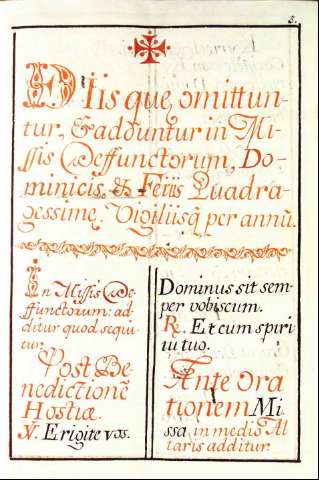 8.
DE Iis que omittun-
tur, & adduntur in Mi-
ssis Deffunctorum, Do-
minicis, & Feriis Quadra-
gessime, Vigiliisq̃ per annũ.
In Missis De-
ffunctorum: ad-
ditur quod sequi-
tur.
Post Be-
nedictionẽ
Hostiæ.
℣. Erigite vos.
Dominus sit sem-
per vobiscum.
℟. Et cum spiri
tu tuo.
Ante Ora
tionem Mi-
ssa in medio Al
taris additur.